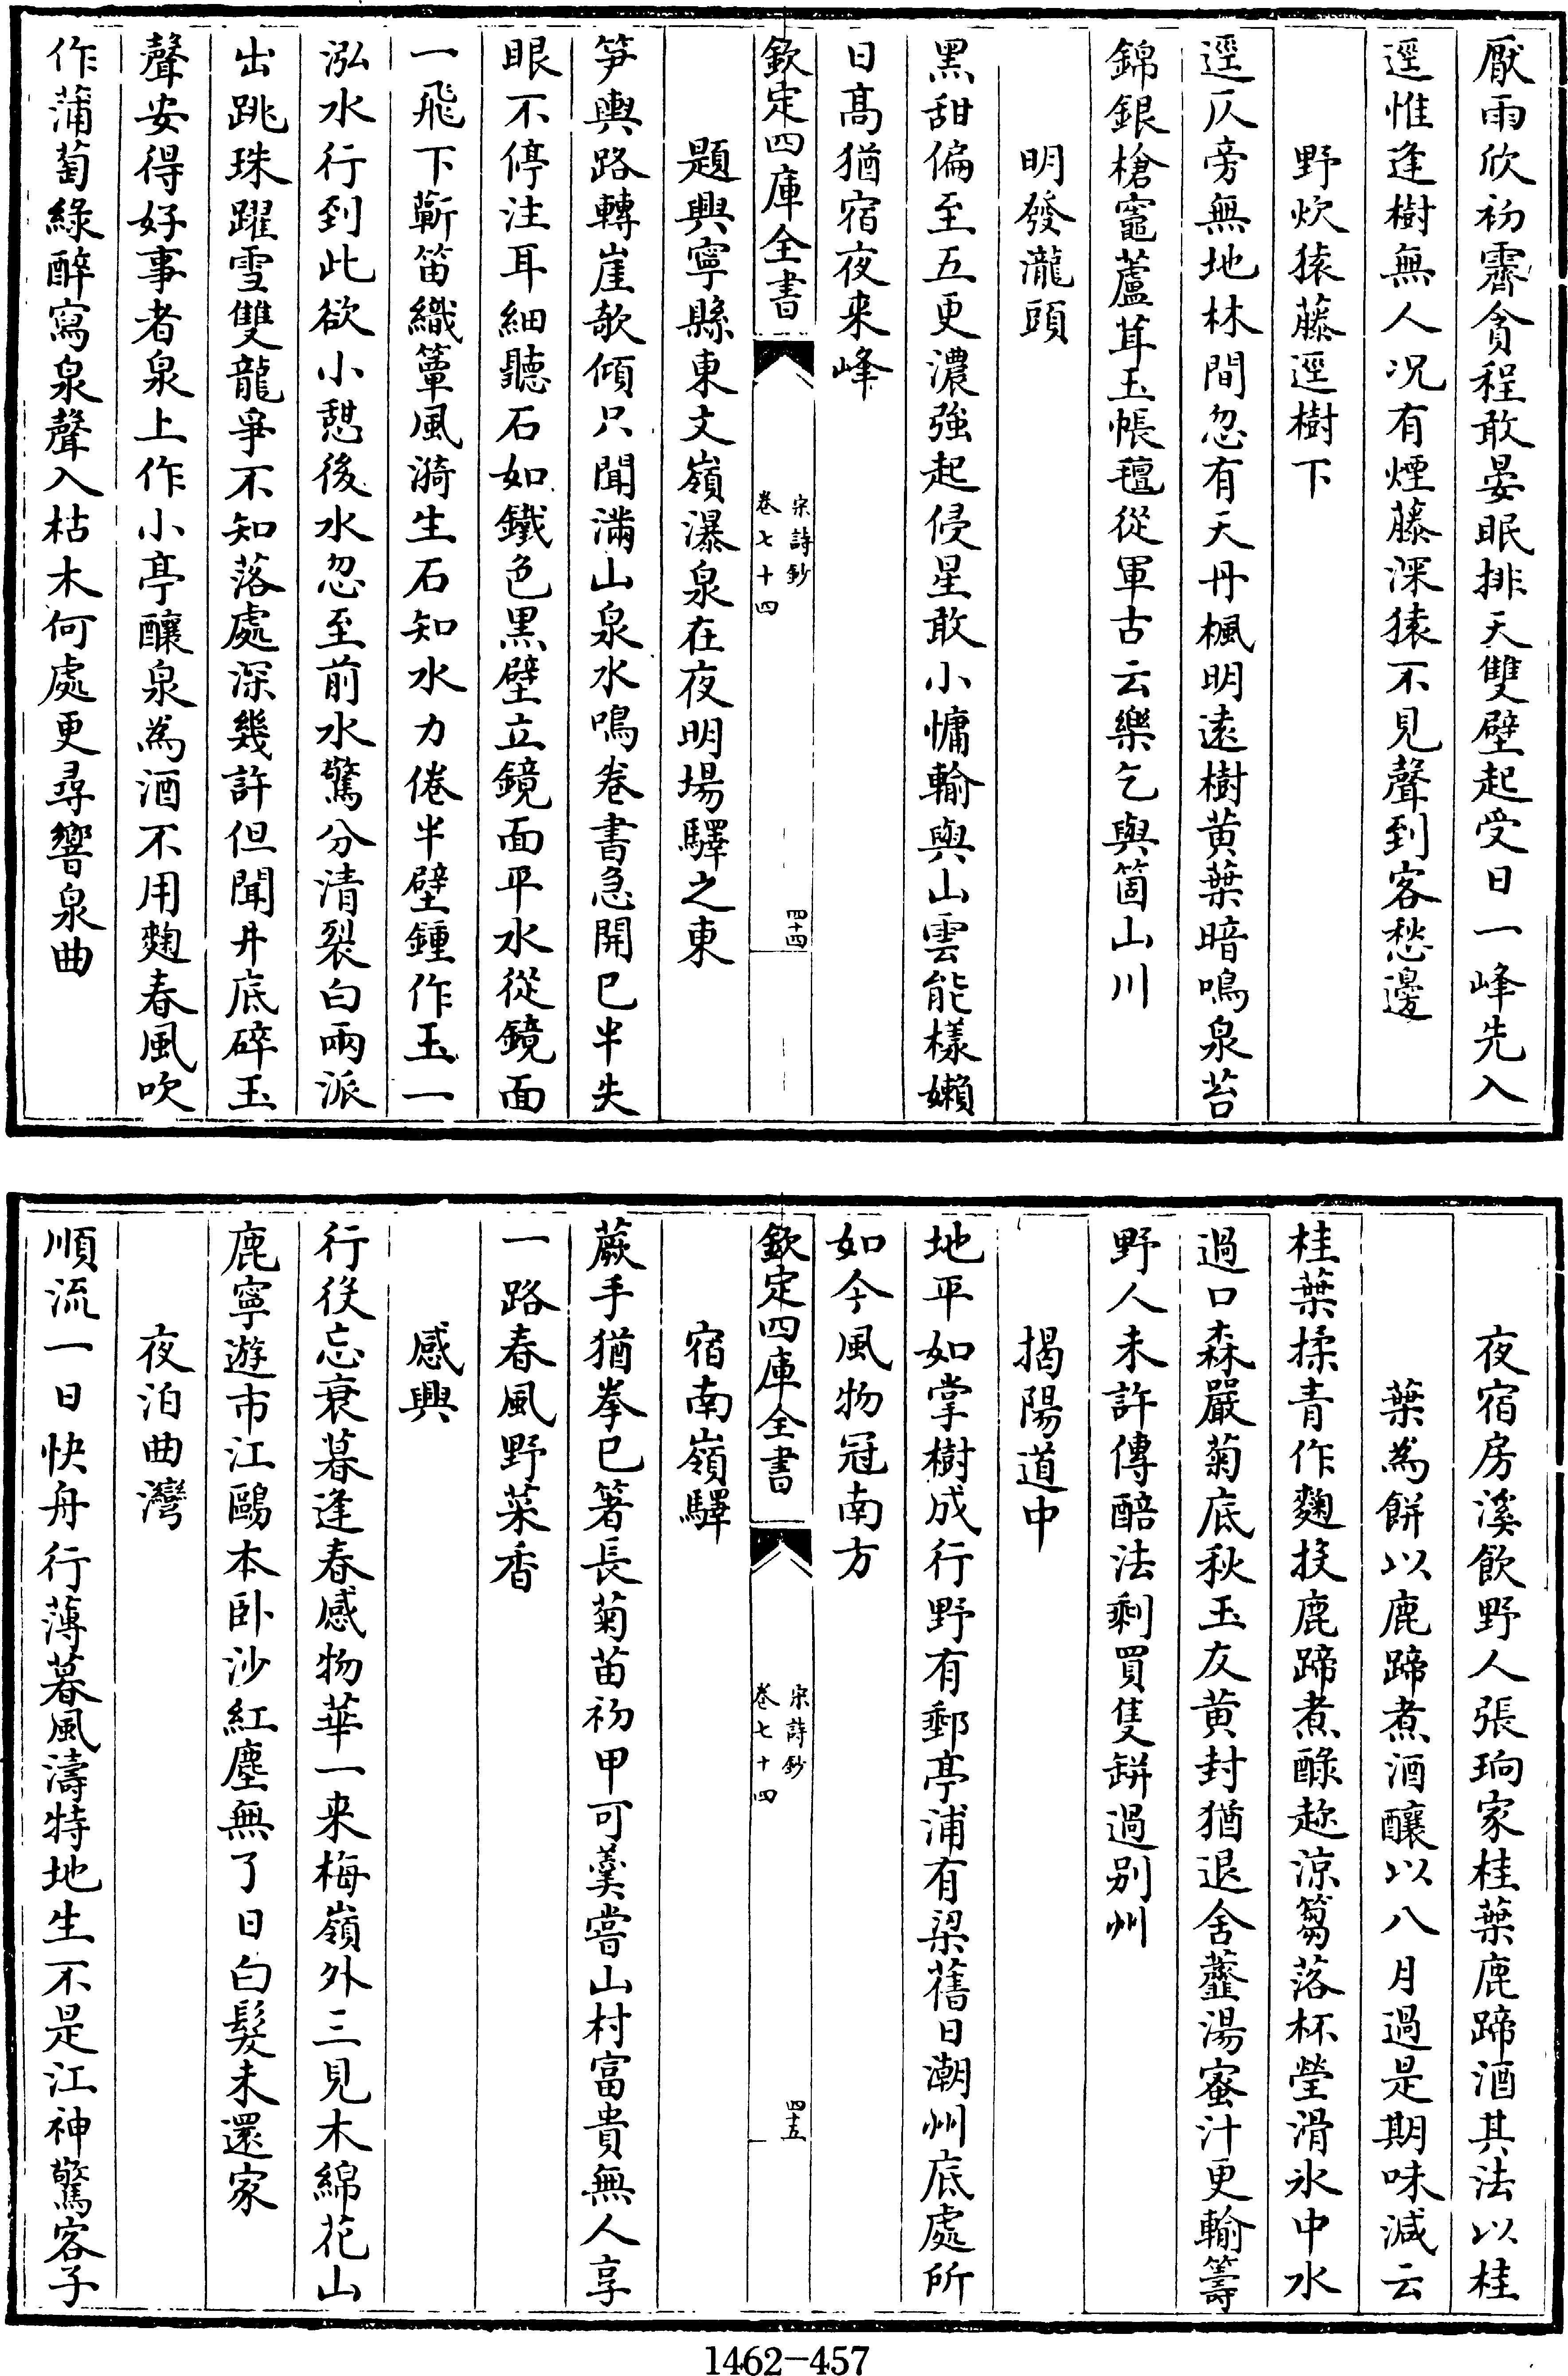 厭雨欣初霽貪程敢晏眠排天雙壁起受日一峰先入
逕惟逢樹無人况有煙藤深猿不見聲到客愁邊
野炊猿藤逕樹下
逕仄旁無地林間忽有天丹楓明遠樹黄葉暗鳴泉苔
錦銀槍竈蘆茸玉帳氊從軍古云樂乞與箇山川
明發瀧頭
黑甜偏至五更濃強起侵星敢小慵輸與山雲能樣嬾
日髙猶宿夜来峰
欽定四庫全書
宋詩鈔
卷七十四
四十四
題興寧縣東文嶺瀑泉在夜明場驛之東
笋輿路轉崖欹傾只聞滿山泉水鳴卷書急開已半失
眼不停注耳細聽石如鐵色黑壁立鏡面平水從鏡面
一飛下蘄笛織簟風漪生石知水力倦半壁鍾作玉一
泓水行到此欲小憇後水忽至前水驚分清裂白兩派
出跳珠躍雪雙龍爭不知落處深幾許但聞井底碎玉
聲安得好事者泉上作小亭釀泉為酒不用麴春風吹
作蒲萄緑醉寫泉聲入枯木何處更尋響泉曲
夜宿房溪飲野人張珦家桂葉鹿蹄酒其法以桂
葉為餅以鹿蹄煮酒釀以八月過是期味減云
桂葉揉青作麴投鹿蹄煮醁趂涼篘落杯瑩滑氷中水
過口森嚴菊底秋玉友黄封猶退舍虀湯蜜汁更輸籌
野人未許傳醅法剩買隻缾過别州
揭陽道中
地平如掌樹成行野有郵亭浦有梁舊日潮州底處所
如今風物冠南方
欽定四庫全書
宋詩鈔
卷七十四
四十五
宿南嶺驛
蕨手猶拳已箸長菊苗初甲可羹嘗山村富貴無人享
一路春風野菜香
感興
行役忘衰暮逢春感物華一来梅嶺外三見木綿花山
鹿寧遊市江鷗本卧沙紅塵無了日白髮未還家
夜泊曲灣
順流一日快舟行薄暮風濤特地生不是江神驚客子
1462-457